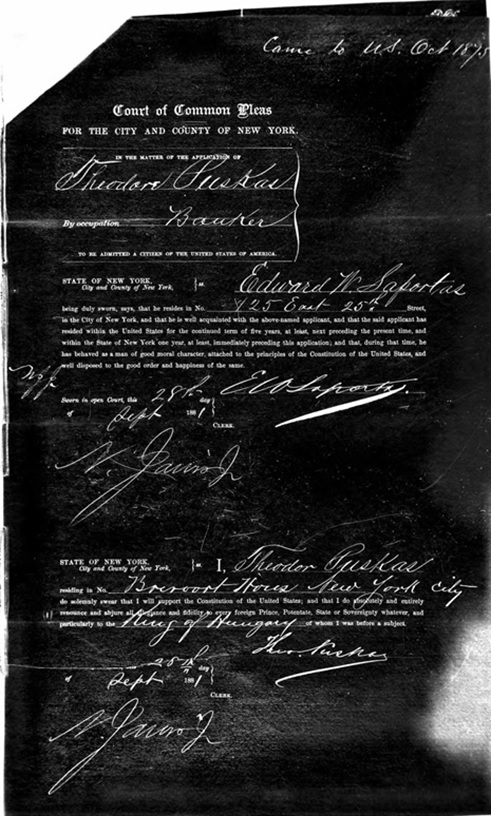 Came to U.S. Oct 1875
Court of Common Pleas
FOR THE CITY AND COUNTY OF NEW YORK.
IN THE MATTER OF THE APPLICATION OF
Theodore Puskas
By occupation Banker
TO BE ADMITTED A CITIZEN OF THE UNITED STATES OF AMERICA.
STATE OF NEW YORK, } ss. Edward W Saportas
City and County of New York,
being duly sworn, says, that he resides in No. 125 East 25th Street,
in the City of New York, and that he is well acquainted with the above-named applicant, and that the said applicant has
resided within the United States for the continued term of five years, at least, next preceding the present time, and
within the State of New York one year, at least, immediately preceding this application; and that, during that time, he
has behaved as a man of good moral character, attached to the principles of the Constitution of the United States, and
well disposed to the good order and happiness of the same.
Saportas.
Sworn in open Court, this 28th day
of Sept 1881
CLERK.
STATE OF NEW YORK, } ss. I, Theodor Puskas
City and County of New York,
residing in No. Brevoort House New York City
do solemnly swear that I will support the Constitution of the United States; and that I do absolutely and entirely
renounce and abjure all allegiance and fidelity to every foreign Prince, Potentate, State or Sovereignty whatever, and
particularly to the King of Hungary of whom I was before a subject.
Theo. Puskas
28th day
of Sept 1881
CLERK.